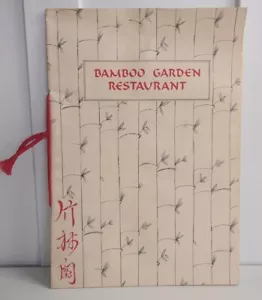 BAMBOO GARDEN
RESTAURANT
竹林園